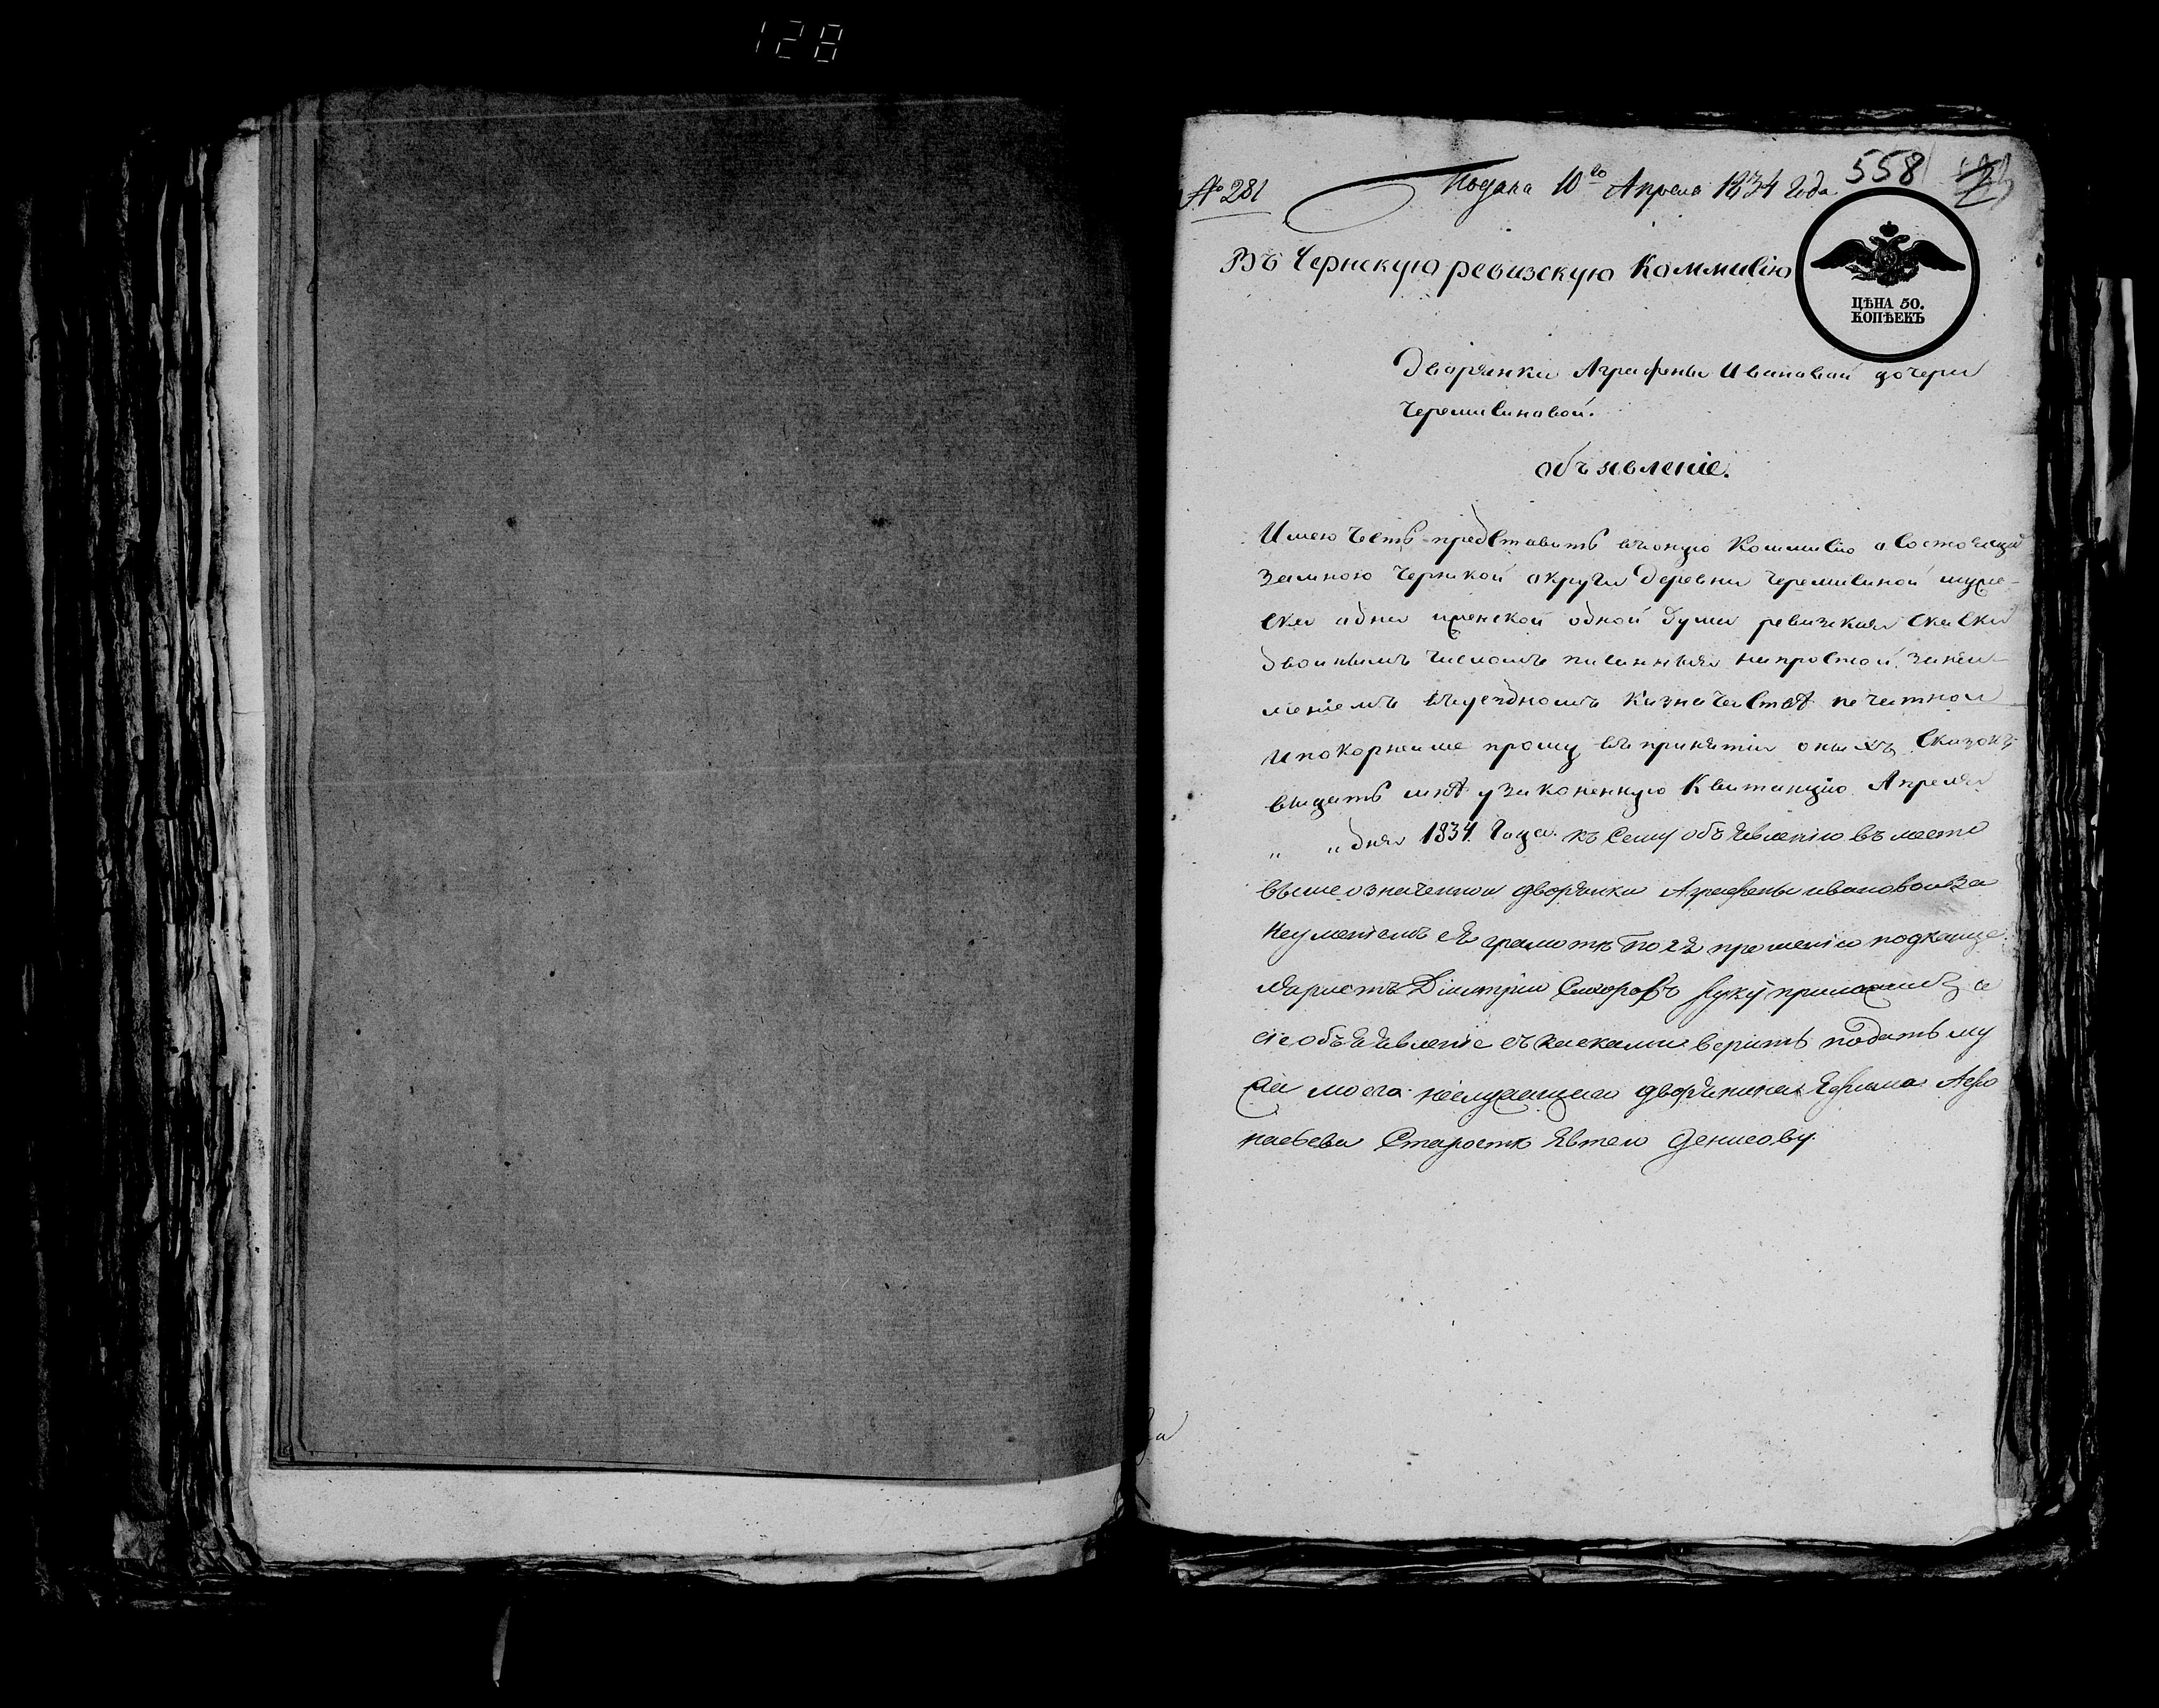 128
№ 281
Подана 10го Апреля 1834 Года
558
Въ Чернскую ревизскую Коммисію
ЦѢНА 50.
КОПѢЕКЪ
Дворянки Аграфены Ивановой дочери
Черемисиновой.
объявленіе.
Имею честь представить въ оную Коммисію о состоящей
за мною Чернской округи деревни Черемисиной муже-
ска одна женской одной души ревизския скаски
двойнымъ числомъ писанныя на простой, за неи-
меніемъ въ уездномъ казначействѣ печатной
и покорнейше прошу въ принятіи оныхъ Сказокъ
выдать мнѣ узаконенную Квитанцію Апреля
„ „ дня 1834 Года. къ сему объявленію въ место
вышеозначенной дворянки Аграфены ивановой за
неуменіемъ ея грамотѣ по ея прошенію подканце
ляристъ Дімитрій руку приложилъ а
сіе объявленіе съ касками верить подать му
жа моего дворянина Ефима Афо
насьева Старостѣ Денисову.